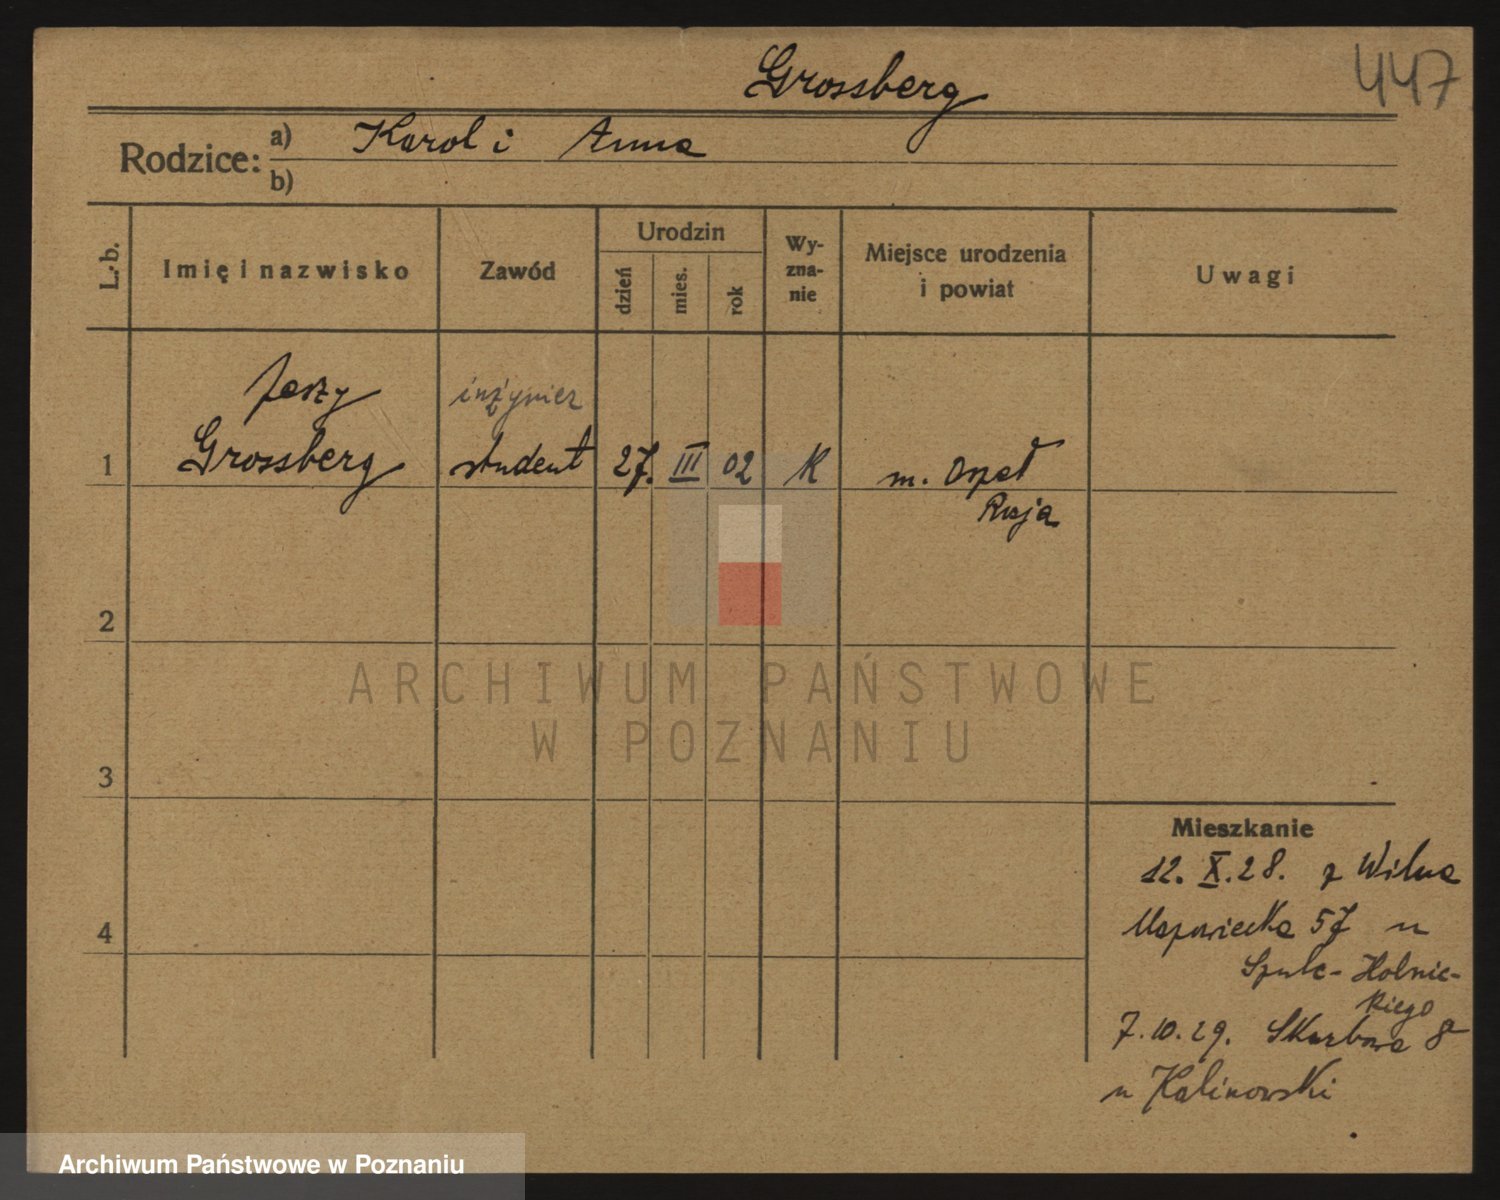 Grossberg
447
Rodzice: a) Karol i Anna
b)
L. b.
Imię i nazwisko
Zawód
Urodzin
dzień
mies.
rok
Wy-
zna-
nie
Miejsce urodzenia
i powiat
Uwagi
Jerzy
inżynier
1 Grossberg student 27. III 02 K m.
Rosja
2
3
4
ARCHIWUM PAŃSTWOWE
W POZNANIU
Mieszkanie
12. X. 28. z Wilna
Mazowiecka 57 u
Szulc-Holnic-
kiego
7.10.29. Skarbowa 8
u Kalinowski
Archiwum Państwowe w Poznaniu